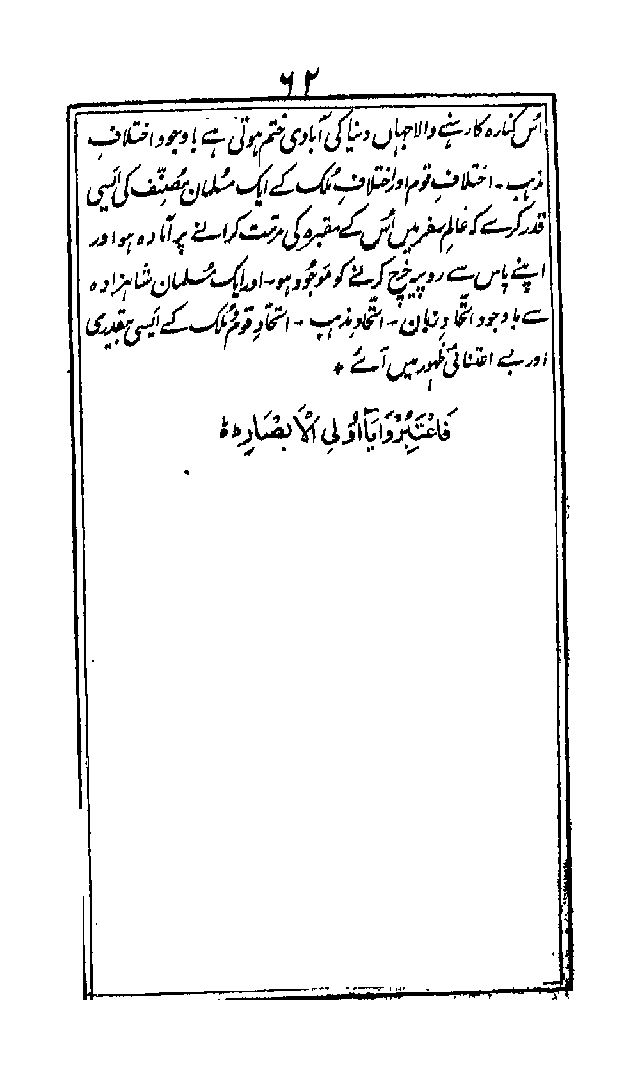 ۶۲
اُس کنارہ کا رہنے والا جہاں دنیا کی آبادی ختم ہوتی ہے باوجود اختلافِ
مذہب ۔ اختلافِ قوم اور اختلافِ مُلک کے ایک مُسلمان مُصنّف کی اَیسی
قدر کرے کہ عالمِ سفر میں اُس کے مقبرہ کی مرمت کرانے پر آمادہ ہو اور
اپنے پاس سے روپیہ خرچ کرنے کو مَوجُود ہو ۔ اور ایک مُسلمان شاہزادہ
سے باوجود اتحّادِ زبان ۔ اتحّادِ مذہب ۔ اتحادِ قوم و مُلک کے اَیسی بیقدری
اور بے اعتنائی ظہور میں آئے ٭
فَاعْتَبِرُوْا یَآ اُولِی الْاَبْصَارِ ؞